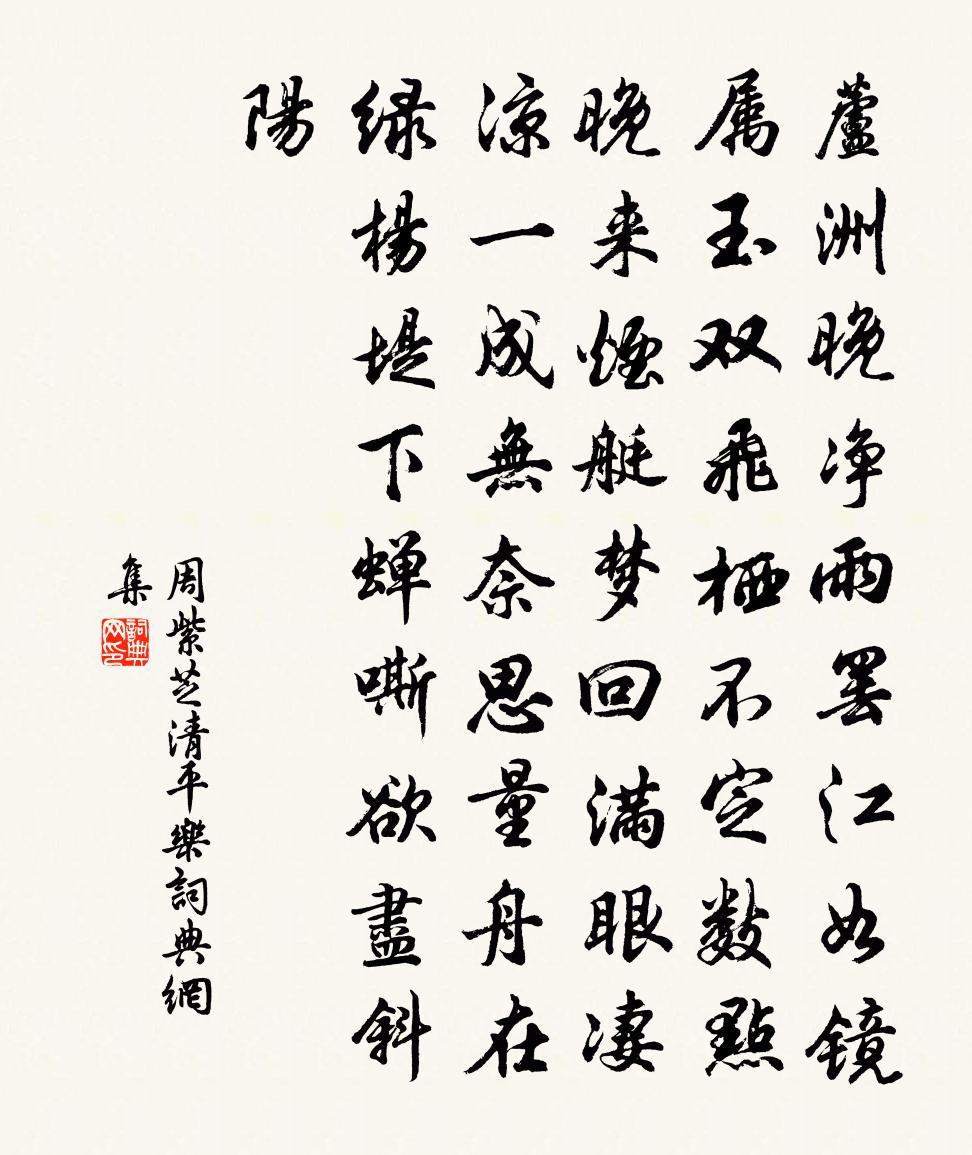 蘆洲晚净雨罢江如镜
属玉双飛栖不定數點
晚来煙艇梦回满眼凄
凉一成無奈思量舟在
绿楊堤下蝉嘶欲盡斜
陽
周紫芝清平樂詞典網
集
詞典网印